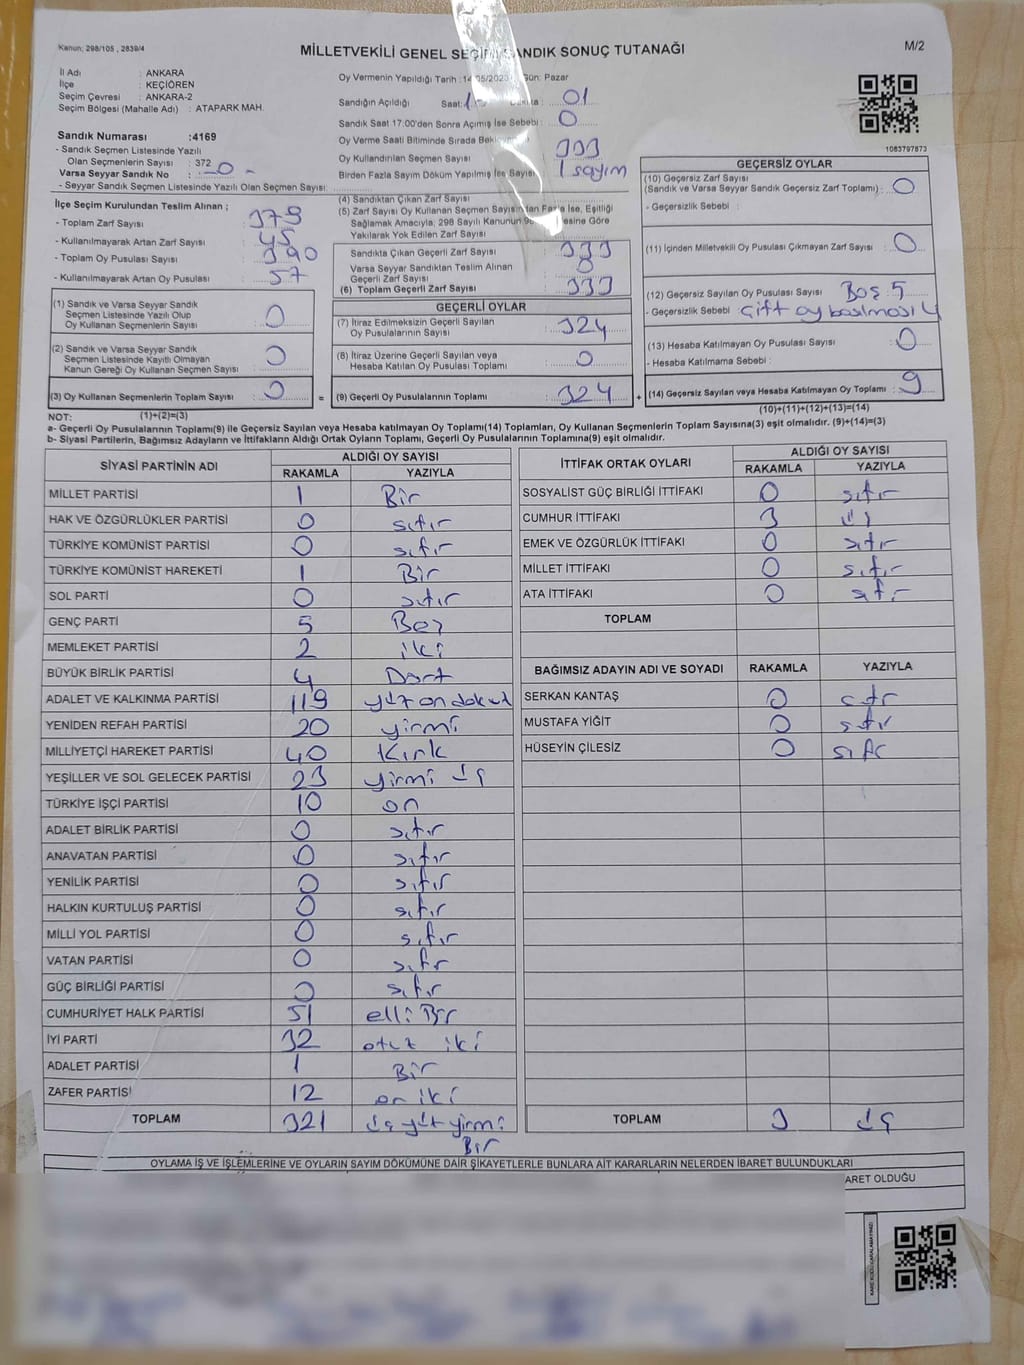 Kanun; 298/105 , 2839/4
MİLLETVEKİLİ GENEL SEÇİM SANDIK SONUÇ TUTANAĞI
M/2
İl Adı : ANKARA
İlçe : KEÇİÖREN
Seçim Çevresi : ANKARA-2
Seçim Bölgesi (Mahalle Adı) : ATAPARK MAH.
Sandık Numarası :4169
- Sandık Seçmen Listesinde Yazılı
Olan Seçmenlerin Sayısı : 372
Varsa Seyyar Sandık No : 0
- Seyyar Sandık Seçmen Listesinde Yazılı Olan Seçmen Sayısı:
Oy Vermenin Yapıldığı Tarih : 14/05/2023 Gün: Pazar
Sandığın Açıldığı Saat: Dakika : 01
Sandık Saat 17:00'den Sonra Açımış İse Sebebi : 0
Oy Verme Saati Bitiminde Sırada
Oy Kullandırılan Seçmen Sayısı 333
Birden Fazla Sayım Döküm Yapılmış İse Sayısı 1 sayım
1083797873
İlçe Seçim Kurulundan Teslim Alınan ;
- Toplam Zarf Sayısı : 378
- Kullanılmayarak Artan Zarf Sayısı : 45
- Toplam Oy Pusulası Sayısı : 390
- Kullanılmayarak Artan Oy Pusulası : 57
(1) Sandık ve Varsa Seyyar Sandık
Seçmen Listesinde Yazılı Olup
Oy Kullanan Seçmenlerin Sayısı : 0
(2) Sandık ve Varsa Seyyar Sandık
Seçmen Listesinde Kayıtlı Olmayan
Kanun Gereği Oy Kullanan Seçmen Sayısı : 0
(3) Oy Kullanan Seçmenlerin Toplam Sayısı : 0
(4) Sandıktan Çıkan Zarf Sayısı
(5) Zarf Sayısı Oy Kullanan Seçmen Sayısından Fazla İse, Eşitliği
Sağlamak Amacıyla, 298 Sayılı Kanunun Göre
Yakılarak Yok Edilen Zarf Sayısı
Sandıkta Çıkan Geçerli Zarf Sayısı : 333
Varsa Seyyar Sandıktan Teslim Alınan
Geçerli Zarf Sayısı : 0
(6) Toplam Geçerli Zarf Sayısı : 333
GEÇERLİ OYLAR
(7) İtiraz Edilmeksizin Geçerli Sayılan
Oy Pusulalarının Sayısı : 324
(8) İtiraz Üzerine Geçerli Sayılan veya
Hesaba Katılan Oy Pusulası Toplamı : 0
= (9) Geçerli Oy Pusulalarının Toplamı : 324 +
GEÇERSİZ OYLAR
(10) Geçersiz Zarf Sayısı
(Sandık ve Varsa Seyyar Sandık Geçersiz Zarf Toplamı) : 0
- Geçersizlik Sebebi :
(11) İçinden Milletvekili Oy Pusulası Çıkmayan Zarf Sayısı : 0
(12) Geçersiz Sayılan Oy Pusulası Sayısı : Boş 5
- Geçersizlik Sebebi : Çift oy basılması 4
(13) Hesaba Katılmayan Oy Pusulası Sayısı : 0
- Hesaba Katılmama Sebebi :
(14) Geçersiz Sayılan veya Hesaba Katılmayan Oy Toplamı : 9
NOT: (1)+(2)=(3) (10)+(11)+(12)+(13)=(14)
a- Geçerli Oy Pusulalarının Toplamı(9) ile Geçersiz Sayılan veya Hesaba katılmayan Oy Toplamı(14) Toplamları, Oy Kullanan Seçmenlerin Toplam Sayısına(3) eşit olmalıdır. (9)+(14)=(3)
b- Siyasi Partilerin, Bağımsız Adayların ve İttifakların Aldığı Ortak Oyların Toplamı, Geçerli Oy Pusulalarının Toplamına(9) eşit olmalıdır.
SİYASİ PARTİNİN ADI ALDIĞI OY SAYISI
RAKAMLA YAZIYLA
MİLLET PARTİSİ 1 Bir
HAK VE ÖZGÜRLÜKLER PARTİSİ 0 sıfır
TÜRKİYE KOMÜNİST PARTİSİ 0 sıfır
TÜRKİYE KOMÜNİST HAREKETİ 1 Bir
SOL PARTİ 0 sıfır
GENÇ PARTİ 5 Beş
MEMLEKET PARTİSİ 2 iki
BÜYÜK BİRLİK PARTİSİ 4 Dört
ADALET VE KALKINMA PARTİSİ 119 yüz on dokuz
YENİDEN REFAH PARTİSİ 20 yirmi
MİLLİYETÇİ HAREKET PARTİSİ 40 Kırk
YEŞİLLER VE SOL GELECEK PARTİSİ 23 yirmi üç
TÜRKİYE İŞÇİ PARTİSİ 10 on
ADALET BİRLİK PARTİSİ 0 sıfır
ANAVATAN PARTİSİ 0 sıfır
YENİLİK PARTİSİ 0 sıfır
HALKIN KURTULUŞ PARTİSİ 0 sıfır
MİLLİ YOL PARTİSİ 0 sıfır
VATAN PARTİSİ 0 sıfır
GÜÇ BİRLİĞİ PARTİSİ 0 sıfır
CUMHURİYET HALK PARTİSİ 51 elli Bir
İYİ PARTİ 32 otuz iki
ADALET PARTİSİ 1 Bir
ZAFER PARTİSİ 12 on iki
TOPLAM 321 üç yüz yirmi
Bir
İTTİFAK ORTAK OYLARI ALDIĞI OY SAYISI
RAKAMLA YAZIYLA
SOSYALİST GÜÇ BİRLİĞİ İTTİFAKI 0 sıfır
CUMHUR İTTİFAKI 3 üç
EMEK VE ÖZGÜRLÜK İTTİFAKI 0 sıfır
MİLLET İTTİFAKI 0 sıfır
ATA İTTİFAKI 0 sıfır
TOPLAM
BAĞIMSIZ ADAYIN ADI VE SOYADI RAKAMLA YAZIYLA
SERKAN KANTAŞ 0 sıfır
MUSTAFA YİĞİT 0 sıfır
HÜSEYİN ÇİLESİZ 0 sıfır
TOPLAM 3 üç
OYLAMA İŞ VE İŞLEMLERİNE VE OYLARIN SAYIM DÖKÜMÜNE DAİR ŞİKAYETLERLE BUNLARA AİT KARARLARIN NELERDEN İBARET BULUNDUKLARI
ARET OLDUĞU